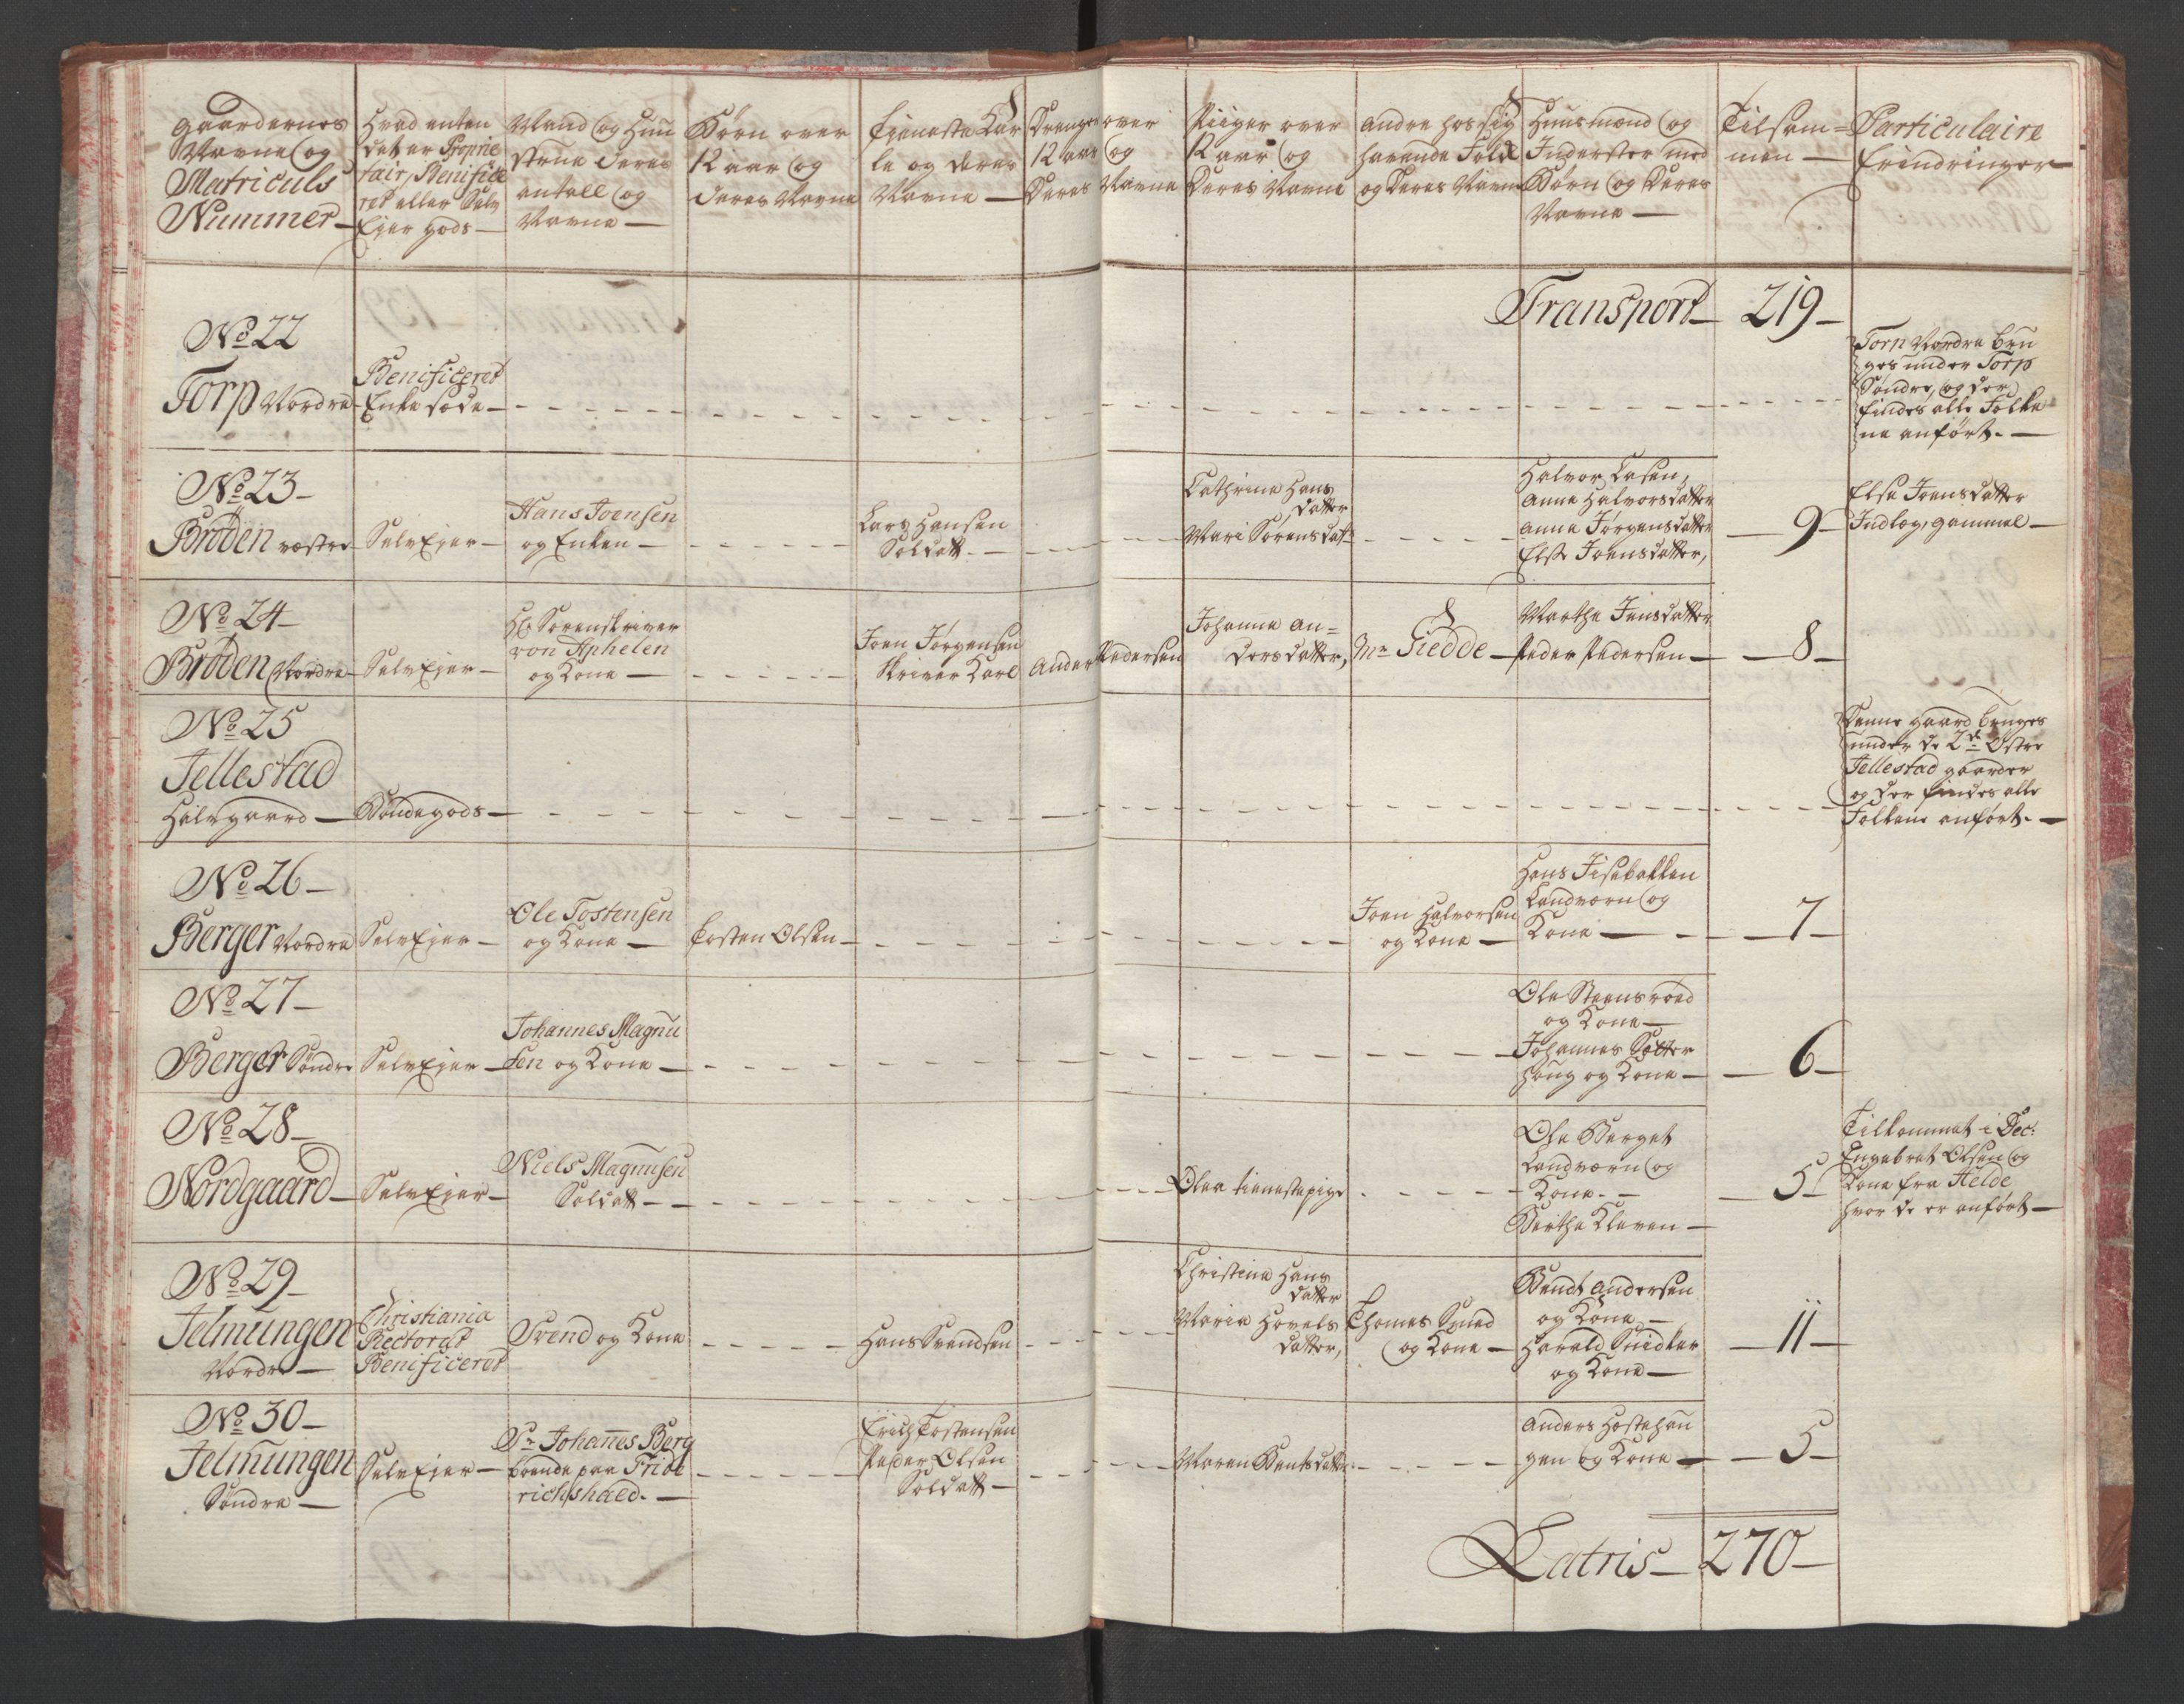 Gaardernes
Navne og
Matriculs
Nummer
Hvad enten
det er Proprie
tair, Benifice
ret eller Selv
Ejer gods
Mand og Huu
strue deres
antall og
Navne
Børn over
12 aar og
deres Navne
Tieneste Kar
le og deres
Navne
Drenge over
12 aar og
Deres Navne
Piiger over
12 aar og
Deres Navne
Andre hos sig
havende Folk
og Deres Navne
Huusmænd og
Inderster med
Børn og Deres
Navne
Tilsam=
men
Particulaire
Erindringer
Transport 219
No 22
Torp Nordre
Benificeret
Enke sæde
Torp Nordre bru
ges under Torp
Søndre, og der
findes alle Folke
ne anført.
No 23
Brøden westre
SelvEjer
Hans Joensen
og Enken
Lars Hansen
Soldatt
Cathrine Hans
datter
Mari Sørensdatr
Halvor Lasen,
Anne Halvorsdatter
Anne Jørgensdatter
Else Joensdatter,
9
Else Joensdatter
Indlæg, gammel
No 24
Brøden Nordre
SelvEjer
Hr Sorenskriver
von Aphelen
og Kone
Joen Jørgensen
Skriver Karl
Ander Pedersen
Johanne An=
dersdatter,
Mr Tiedde
Marthe Jensdatter
Peder Pedersen
8
No 25
Jellestad
Halvgaard
Bøndegods
Denne gaard bruges
under de 2de Østre
Jellestad gaarder
og der findes alle
Folkene anført.
No 26
Berger Nordre
SelvEjer
Ole Tostensen
og Kone
Tosten Olsen
Joen Halvorsen
og Kone
Hans Fisebakken
Landværn og
Kone
7
No 27
Berger Søndre
SelvEjer
Johannes Magnu
sen og Kone
Ole Steensroed
og Kone
Johannes Sætter
houg og Kone
6
No 28
Nordgaard
SelvEjer
Niels Magnusen
Soldatt
Olea tienestepige
Ole Berget
Landværn og
Kone
Berthe Kleven
5
Tilkommet i Dec:
Engebret Olsen og
Kone fra Helde
hvor de er anført
No 29
Jelmungen
Nordre
Christiania
Rectorat
Benificeret
Svend og Kone
Hans Svendsen
Christine Hans
datter
Maria Hovels
datter,
Thomas Smed
og Kone
Bendt Andersen
og Kone
Harald Snidker
og Kone
11
No 30
Jelmungen
Søndre
SelvEjer
Sr Johanes Berg
boende paa Fride
richshald.
Erich Tostensen
Peder Olsen
Soldatt
Maren Bentsdatter
Anders Hestehau
gen og Kone
5
Latris 270